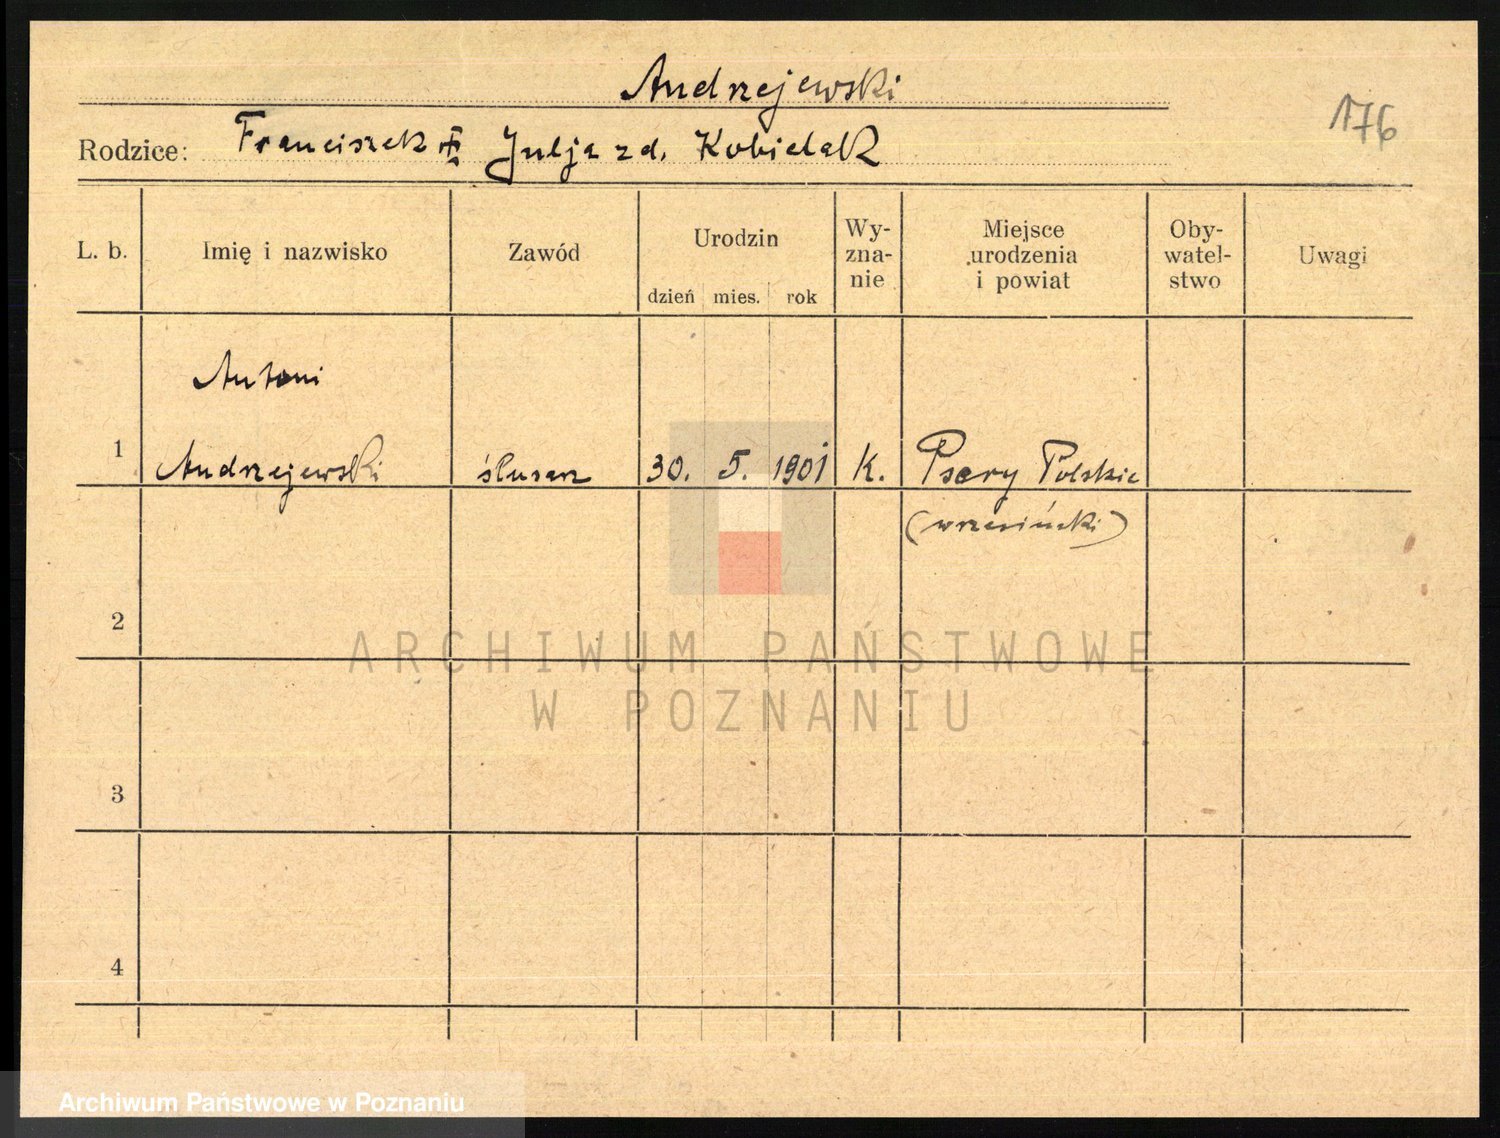 Andrzejewski
176
Rodzice: Franciszek Julja zd. Kobielak
L. b. Imię i nazwisko Zawód Urodzin dzień mies. rok Wy-zna-nie Miejsce urodzenia i powiat Oby-watel-stwo Uwagi
Antoni
1 Andrzejewski ślusarz 30. 5. 1901 K. Psary Polskie
(wrzesiński)
2
ARCHIWUM PAŃSTWOWE
W POZNANIU
3
4
Archiwum Państwowe w Poznaniu